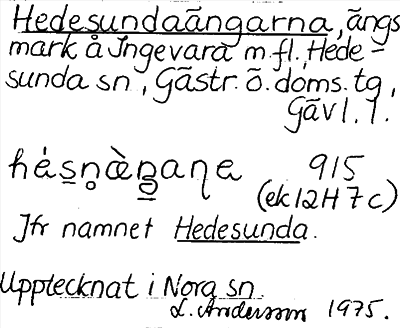 Hedesundaängarna, ängs
mark å Ingevara m.fl., Hede-
sunda sn, Gästr. ö. doms. tg,
Gävl. l.
915
(ek 12H 7c)
Jfr namnet Hedesunda.
Upptecknat i Nora sn
L. Andersson 1975.